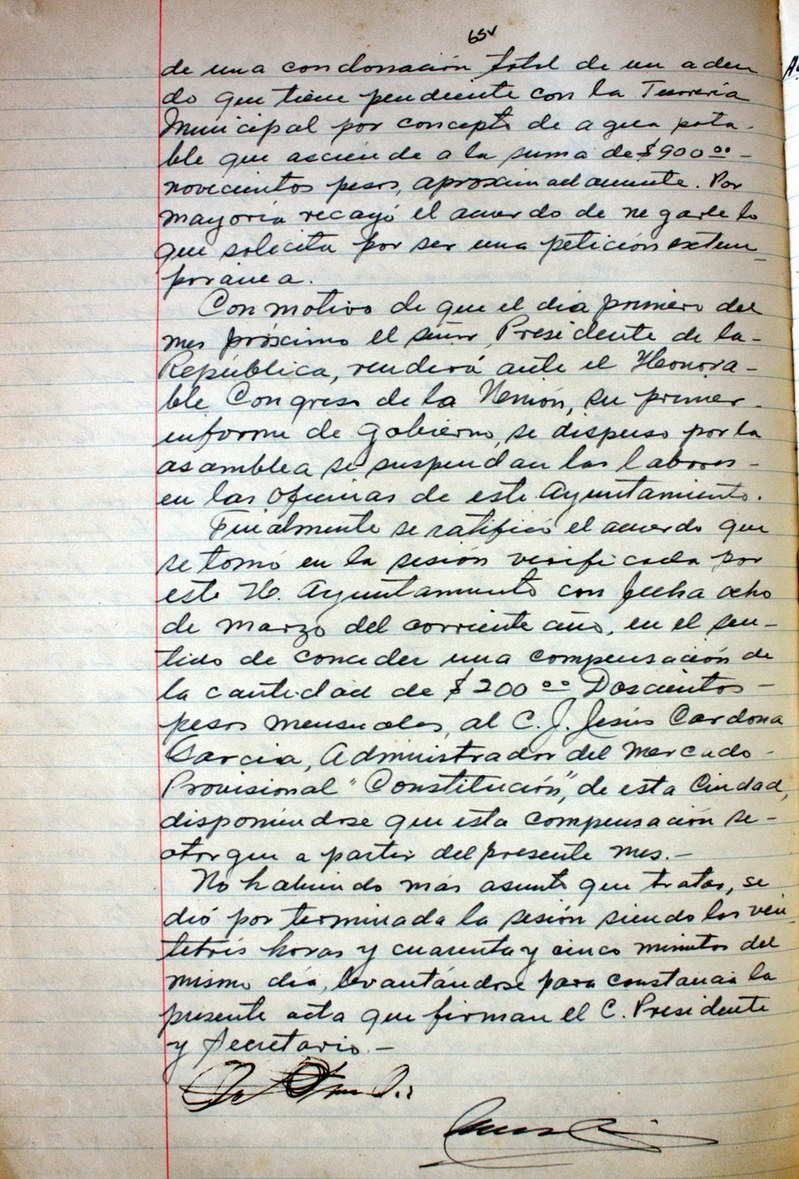 65v
de una condonación total de un adeu
do que tiene pendiente con la Tesorería
Municipal por concepto de agua pota-
ble que asciende a la suma de $900.00-
novecientos pesos, aproximadamente. Por
mayoría recayó el acuerdo de negarle lo
que solicita por ser una petición extem-
poranea.
Con motivo de que el dia primero del
mes próximo el señor Presidente de la-
República, renderá ante el Honora-
ble Congreso de la Unión, su primer-
informe de gobierno, se dispuso por la
asamblea se suspendan las labores-
en las oficinas de este Ayuntamiento.
Finalmente se ratificó el acuerdo que
se tomó en la sesión verificada por
este H. Ayuntamiento con fecha ocho
de marzo del corriente año, en el sen-
tido de conceder una compensación de
la cantidad de $200.00 Doscientos-
pesos mensuales, al C. J. Jesús Cardona
Garcia, Administrador del Mercado-
Provisional "Constitución", de esta Ciudad,
disponiendose que esta compensación se-
otorgue a partir del presente mes.-
No habiendo más asunto que tratar, se
dió por terminada la sesión siendo las vein
titrés horas y cuarenta y cinco minutos del
mismo día, levantándose para constancia la
presente acta que firman el C. Presidente
y Secretario.-